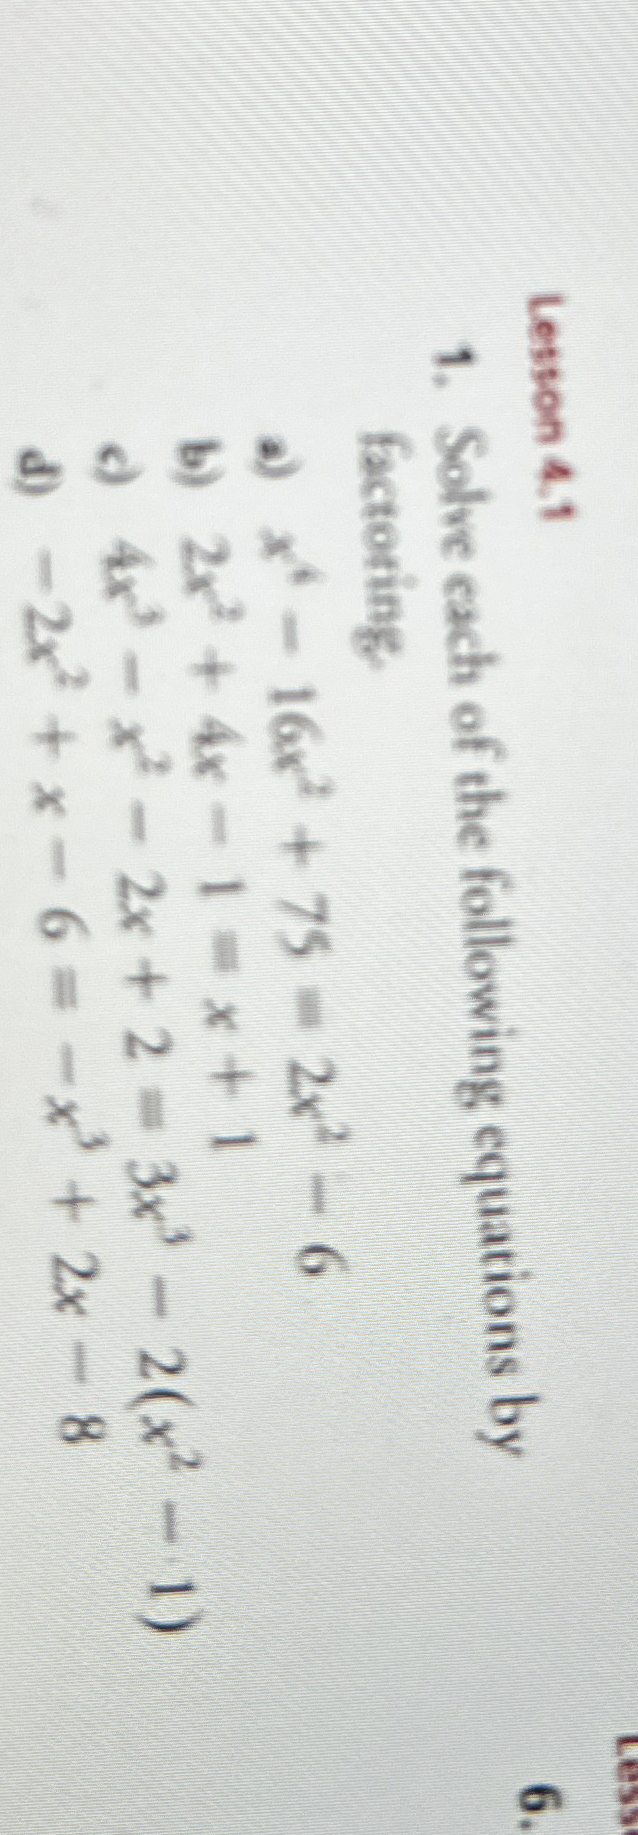 Lesson 4.1
1. Solve each of the following equations by
factoring.
a) x⁴ − 16x² + 75 = 2x² − 6
b) 2x² + 4x − 1 = x + 1
c) 4x³ − x² − 2x + 2 = 3x³ − 2(x² − 1)
d) −2x² + x − 6 = −x³ + 2x − 8
6.